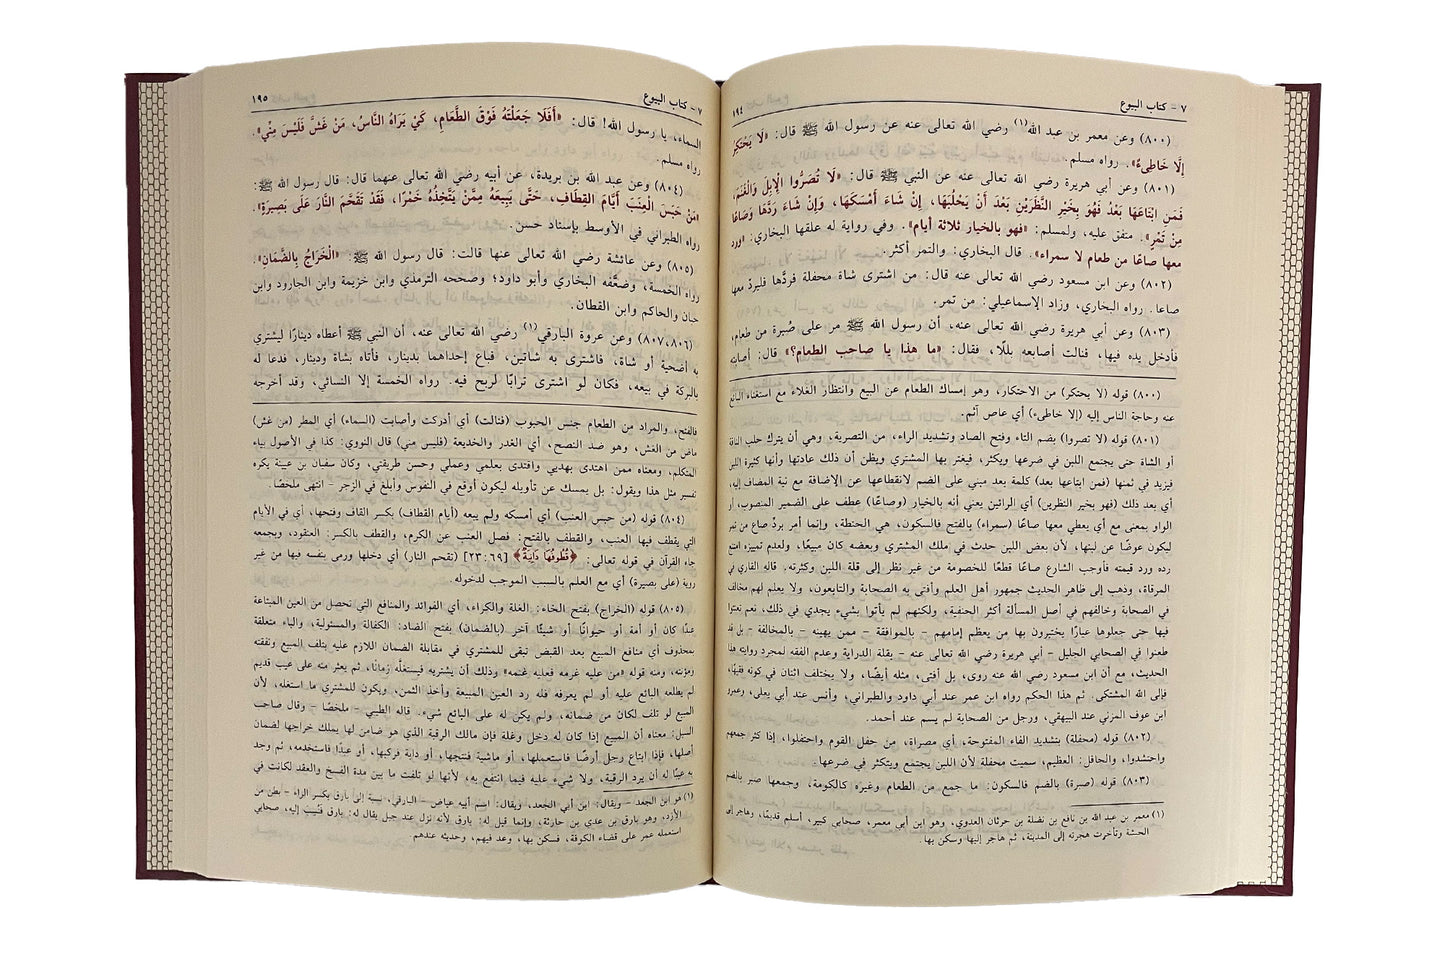 ٧ - كتاب البيوع ١٩٤
(٨٠٠) وعن معمر بن عبد الله(١) رضي الله تعالى عنه عن رسول الله ﷺ قال: «لَا يَحْتَكِرُ
إِلَّا خَاطِىءٌ». رواه مسلم.
(٨٠١) وعن أبي هريرة رضي الله تعالى عنه عن النبي ﷺ قال: «لَا تُصَرُّوا الْإِبِلَ وَالْغَنَمَ،
فَمَنِ ابْتَاعَهَا بَعْدُ فَهُوَ بِخَيْرِ النَّظَرَيْنِ بَعْدَ أَنْ يَحْلُبَهَا، إِنْ شَاءَ أَمْسَكَهَا، وَإِنْ شَاءَ رَدَّهَا وَصَاعًا
مِنْ تَمْرٍ». متفق عليه، ولمسلم: «فهو بالخيار ثلاثة أيام». وفي رواية له علقها البخاري: «ورد
معها صاعًا من طعام لا سمراء». قال البخاري: والتمر أكثر.
(٨٠٢) وعن ابن مسعود رضي الله تعالى عنه قال: من اشترى شاة محفلة فردَّها فليردّ معها
صاعا. رواه البخاري، وزاد الإسماعيلي: من تمر.
(٨٠٣) وعن أبي هريرة رضي الله تعالى عنه، أن رسول الله ﷺ مر على صُبرة من طعام،
فأدخل يده فيها، فنالت أصابعه بللًا، فقال: «ما هذا يا صاحب الطعام؟» قال: أصابته
(٨٠٠) قوله (لا يحتكر) من الاحتكار، وهو إمساك الطعام عن البيع وانتظار الغلاء مع استغناء البائع
عنه وحاجة الناس إليه (إلا خاطىء) أي عاص آثم.
(٨٠١) قوله (لا تصروا) بضم التاء وفتح الصاد وتشديد الراء، من التصرية، وهي أن يترك حلب الناقة
أو الشاة حتى يجتمع اللبن في ضرعها ويكثر، فيغتر بها المشتري ويظن أن ذلك عادتها وأنها كثيرة اللبن
فيزيد في ثمنها (فمن ابتاعها بعد) كلمة بعد مبني على الضم لانقطاعها عن الإضافة مع نية المضاف إليه،
أي بعد ذلك (فهو بخير النظرين) أي الرائين يعني أنه بالخيار (وصاعًا) عطف على الضمير المنصوب، أو
الواو بمعنى مع أي يعطي معها صاعًا (سمراء) بالفتح فالسكون، هي الحنطة، وإنما أمر بردّ صاع من تمر
ليكون عوضًا عن لبنها، لأن بعض اللبن حدث في ملك المشتري وبعضه كان مبيعًا، ولعدم تمييزه امتنع
رده ورد قيمته فأوجب الشارع صاعًا قطعًا للخصومة من غير نظر إلى قلة اللبن وكثرته. قاله القاري في
المرقاة، وذهب إلى ظاهر الحديث جمهور أهل العلم وأفتى به الصحابة والتابعون، ولا يعلم لهم مخالف
في الصحابة وخالفهم في أصل المسألة أكثر الحنفية، ولكنهم لم يأتوا بشيء يجدي في ذلك، نعم تعنتوا
فيها حتى جعلوها عيارًا يختبرون بها من يعظم إمامهم - بالموافقة - ممن يهينه - بالمخالفة - بل قد
طعنوا في الصحابي الجليل - أبي هريرة رضي الله تعالى عنه - بقلة الدراية وعدم الفقه لمجرد روايته هذا
الحديث، مع أن ابن مسعود رضي الله عنه روى، بل أفتى، مثله أيضًا، ولا يختلف اثنان في كونه فقيهًا،
فإلى الله المشتكى، ثم هذا الحكم رواه ابن عمر عند أبي داود والطبراني، وأنس عند أبي يعلى، وعمرو
ابن عوف المزني عند البيهقي، ورجل من الصحابة لم يسم عند أحمد.
(٨٠٢) قوله (محفلة) بتشديد الفاء المفتوحة، أي مصراة، من حفل القوم واحتفلوا، إذا كثر جمعهم
واحتشدوا، والحافل: العظيم، سميت محفلة لأن اللبن يجتمع ويتكثر في ضرعها.
(٨٠٣) قوله (صبرة) بالضم فالسكون: ما جمع من الطعام وغيره كالكومة، وجمعها صبر بالضم
(١) معمر بن عبد الله بن نافع بن نضلة بن حرثان العدوي، وهو ابن أبي معمر، صحابي كبير، أسلم قديمًا، وهاجر إلى
الحبشة وتأخرت هجرته إلى المدينة، ثم هاجر إليها وسكن بها.
٧ - كتاب البيوع ١٩٥
السماء، يا رسول الله! قال: «أَفَلَا جَعَلْتَهُ فَوْقَ الطَّعَامِ، كَيْ يَرَاهُ النَّاسُ، مَنْ غَشَّ فَلَيْسَ مِنِّي».
رواه مسلم.
(٨٠٤) وعن عبد الله بن بريدة، عن أبيه رضي الله تعالى عنهما قال: قال رسول الله ﷺ:
«مَنْ حَبَسَ الْعِنَبَ أَيَّامَ الْقِطَافِ، حَتَّى يَبِيعَهُ مِمَّنْ يَتَّخِذُهُ خَمْرًا، فَقَدْ تَقَحَّمَ النَّارَ عَلَى بَصِيرَةٍ».
رواه الطبراني في الأوسط بإسناد حسن.
(٨٠٥) وعن عائشة رضي الله تعالى عنها قالت: قال رسول الله ﷺ: «الْخَرَاجُ بِالضَّمَانِ».
رواه الخمسة، وضعَّفه البخاري وأبو داود؛ وصححه الترمذي وابن خزيمة وابن الجارود وابن
حبان والحاكم وابن القطان.
(٨٠٦،٨٠٧) وعن عروة البارقي (١) رضي الله تعالى عنه، أن النبي ﷺ أعطاه دينارًا ليشتري
به أضحية أو شاة، فاشترى به شاتين، فباع إحداهما بدينار، فأتاه بشاة ودينار، فدعا له
بالبركة في بيعه، فكان لو اشترى ترابًا لربح فيه. رواه الخمسة إلا النسائي، وقد أخرجه
فالفتح، والمراد من الطعام جنس الحبوب (فنالت) أي أدركت وأصابت (السماء) أي المطر (من غش)
ماض من الغش، وهو ضد النصح، أي الغدر والخديعة (فليس مني) قال النووي: كذا في الأصول بياء
المتكلم، ومعناه ممن اهتدى بهديي واقتدى بعلمي وعملي وحسن طريقتي، وكان سفيان بن عيينة يكره
تفسير مثل هذا ويقول: بل يمسك عن تأويله ليكون أوقع في النفوس وأبلغ في الزجر - انتهى ملخصًا.
(٨٠٤) قوله (من حبس العنب) أي أمسكه ولم يبعه (أيام القطاف) بكسر القاف وفتحها، أي في الأيام
التي يقطف فيها العنب، والقطف بالفتح: فصل العنب عن الكرم، والقطف بالكسر: العنقود، وبجمعه
جاء القرآن في قوله تعالى: ﴿قُطُوفُهَا دَانِيَةٌ﴾ [٢٣:٦٩] (تقحم النار) أي دخلها ورمى بنفسه فيها من غير
روية (على بصيرة) أي مع العلم بالسبب الموجب لدخوله.
(٨٠٥) قوله (الخراج) بفتح الخاء: الغلة والكراء، أي الفوائد والمنافع التي تحصل من العين المبتاعة
عبدًا كان أو أمة أو حيوانًا أو شيئًا آخر (بالضمان) بفتح الضاد: الكفالة والمسئولية، والباء متعلقة
بمحذوف أي منافع المبيع بعد القبض تبقى للمشتري في مقابلة الضمان اللازم عليه بتلف المبيع ونفقته
ومؤنته، ومنه قوله «من عليه غرمه فعليه غنمه» وذلك أن يشتريه فيستغلّه زمانًا، ثم يعثر منه على عيب قديم
لم يطلعه البائع عليه أو لم يعرفه فله رد العين المبيعة وأخذ الثمن، ويكون للمشتري ما استغله، لأن
المبيع لو تلف لكان من ضمانه، ولم يكن له على البائع شيء. قاله الطيبي - ملخصًا - وقال صاحب
السبل: معناه أن المبيع إذا كان له دخل وغلة فإن مالك الرقبة الذي هو ضامن لها يملك خراجها لضمان
أصلها، فإذا ابتاع رجل أرضًا فاستعملها، أو ماشية فنتجها، أو دابة فركبها، أو عبدًا فاستخدمه، ثم وجد
به عيبًا له أن يرد الرقبة، ولا شيء عليه فيما انتفع به، لأنها لو تلفت ما بين مدة الفسخ والعقد لكانت في
(١) هو ابن الجعد - ويقال: ابن أبي الجعد، ويقال: اسم أبيه عياض - البارقي، نسبة إلى بارق بكسر الراء - بطن من
الأزد، وهو بارق بن عدي بن حارثة، وإنما قيل له: بارق لأنه نزل عند جبل يقال له: بارق فنُسِب إليه، صحابي
استعمله عمر على قضاء الكوفة، فسكن بها، وعد فيهم، وحديثه عندهم